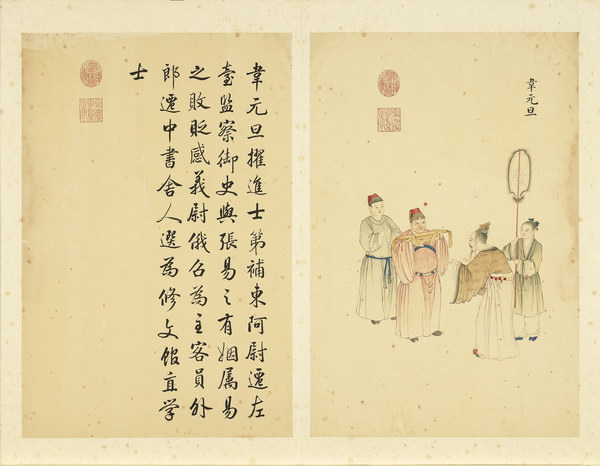 韋元旦
韋元旦擢進士第補東阿尉遷左
臺監察御史與張易之有姻属易
之敗貶感義尉俄召為主客員外
郎遷中書舍人選為修文館直學
士